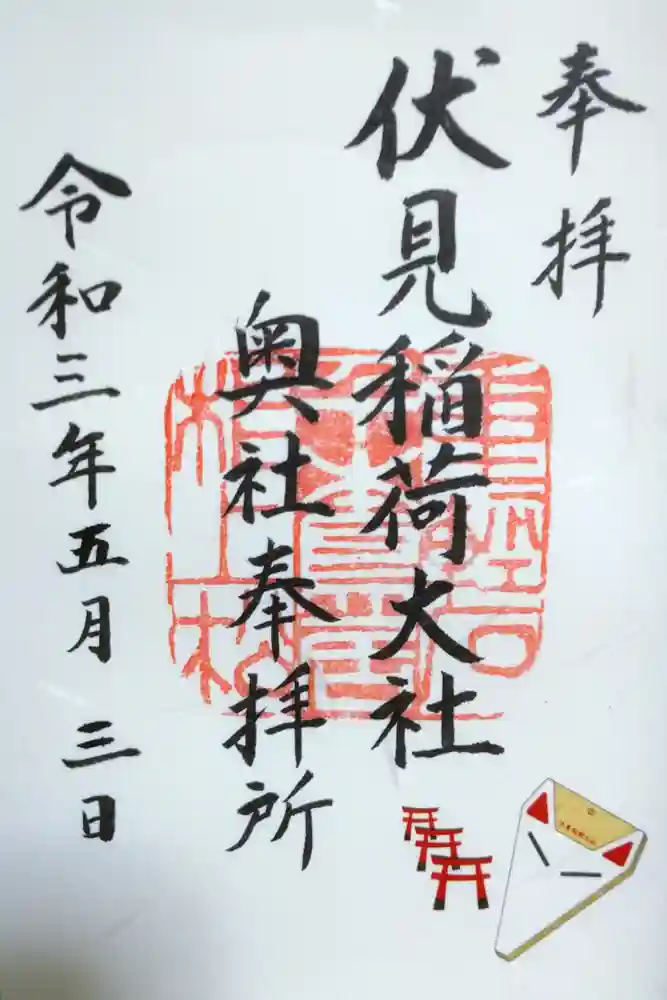 奉拝
伏見稲荷大社
奥社奉拝所
令和三年五月三日